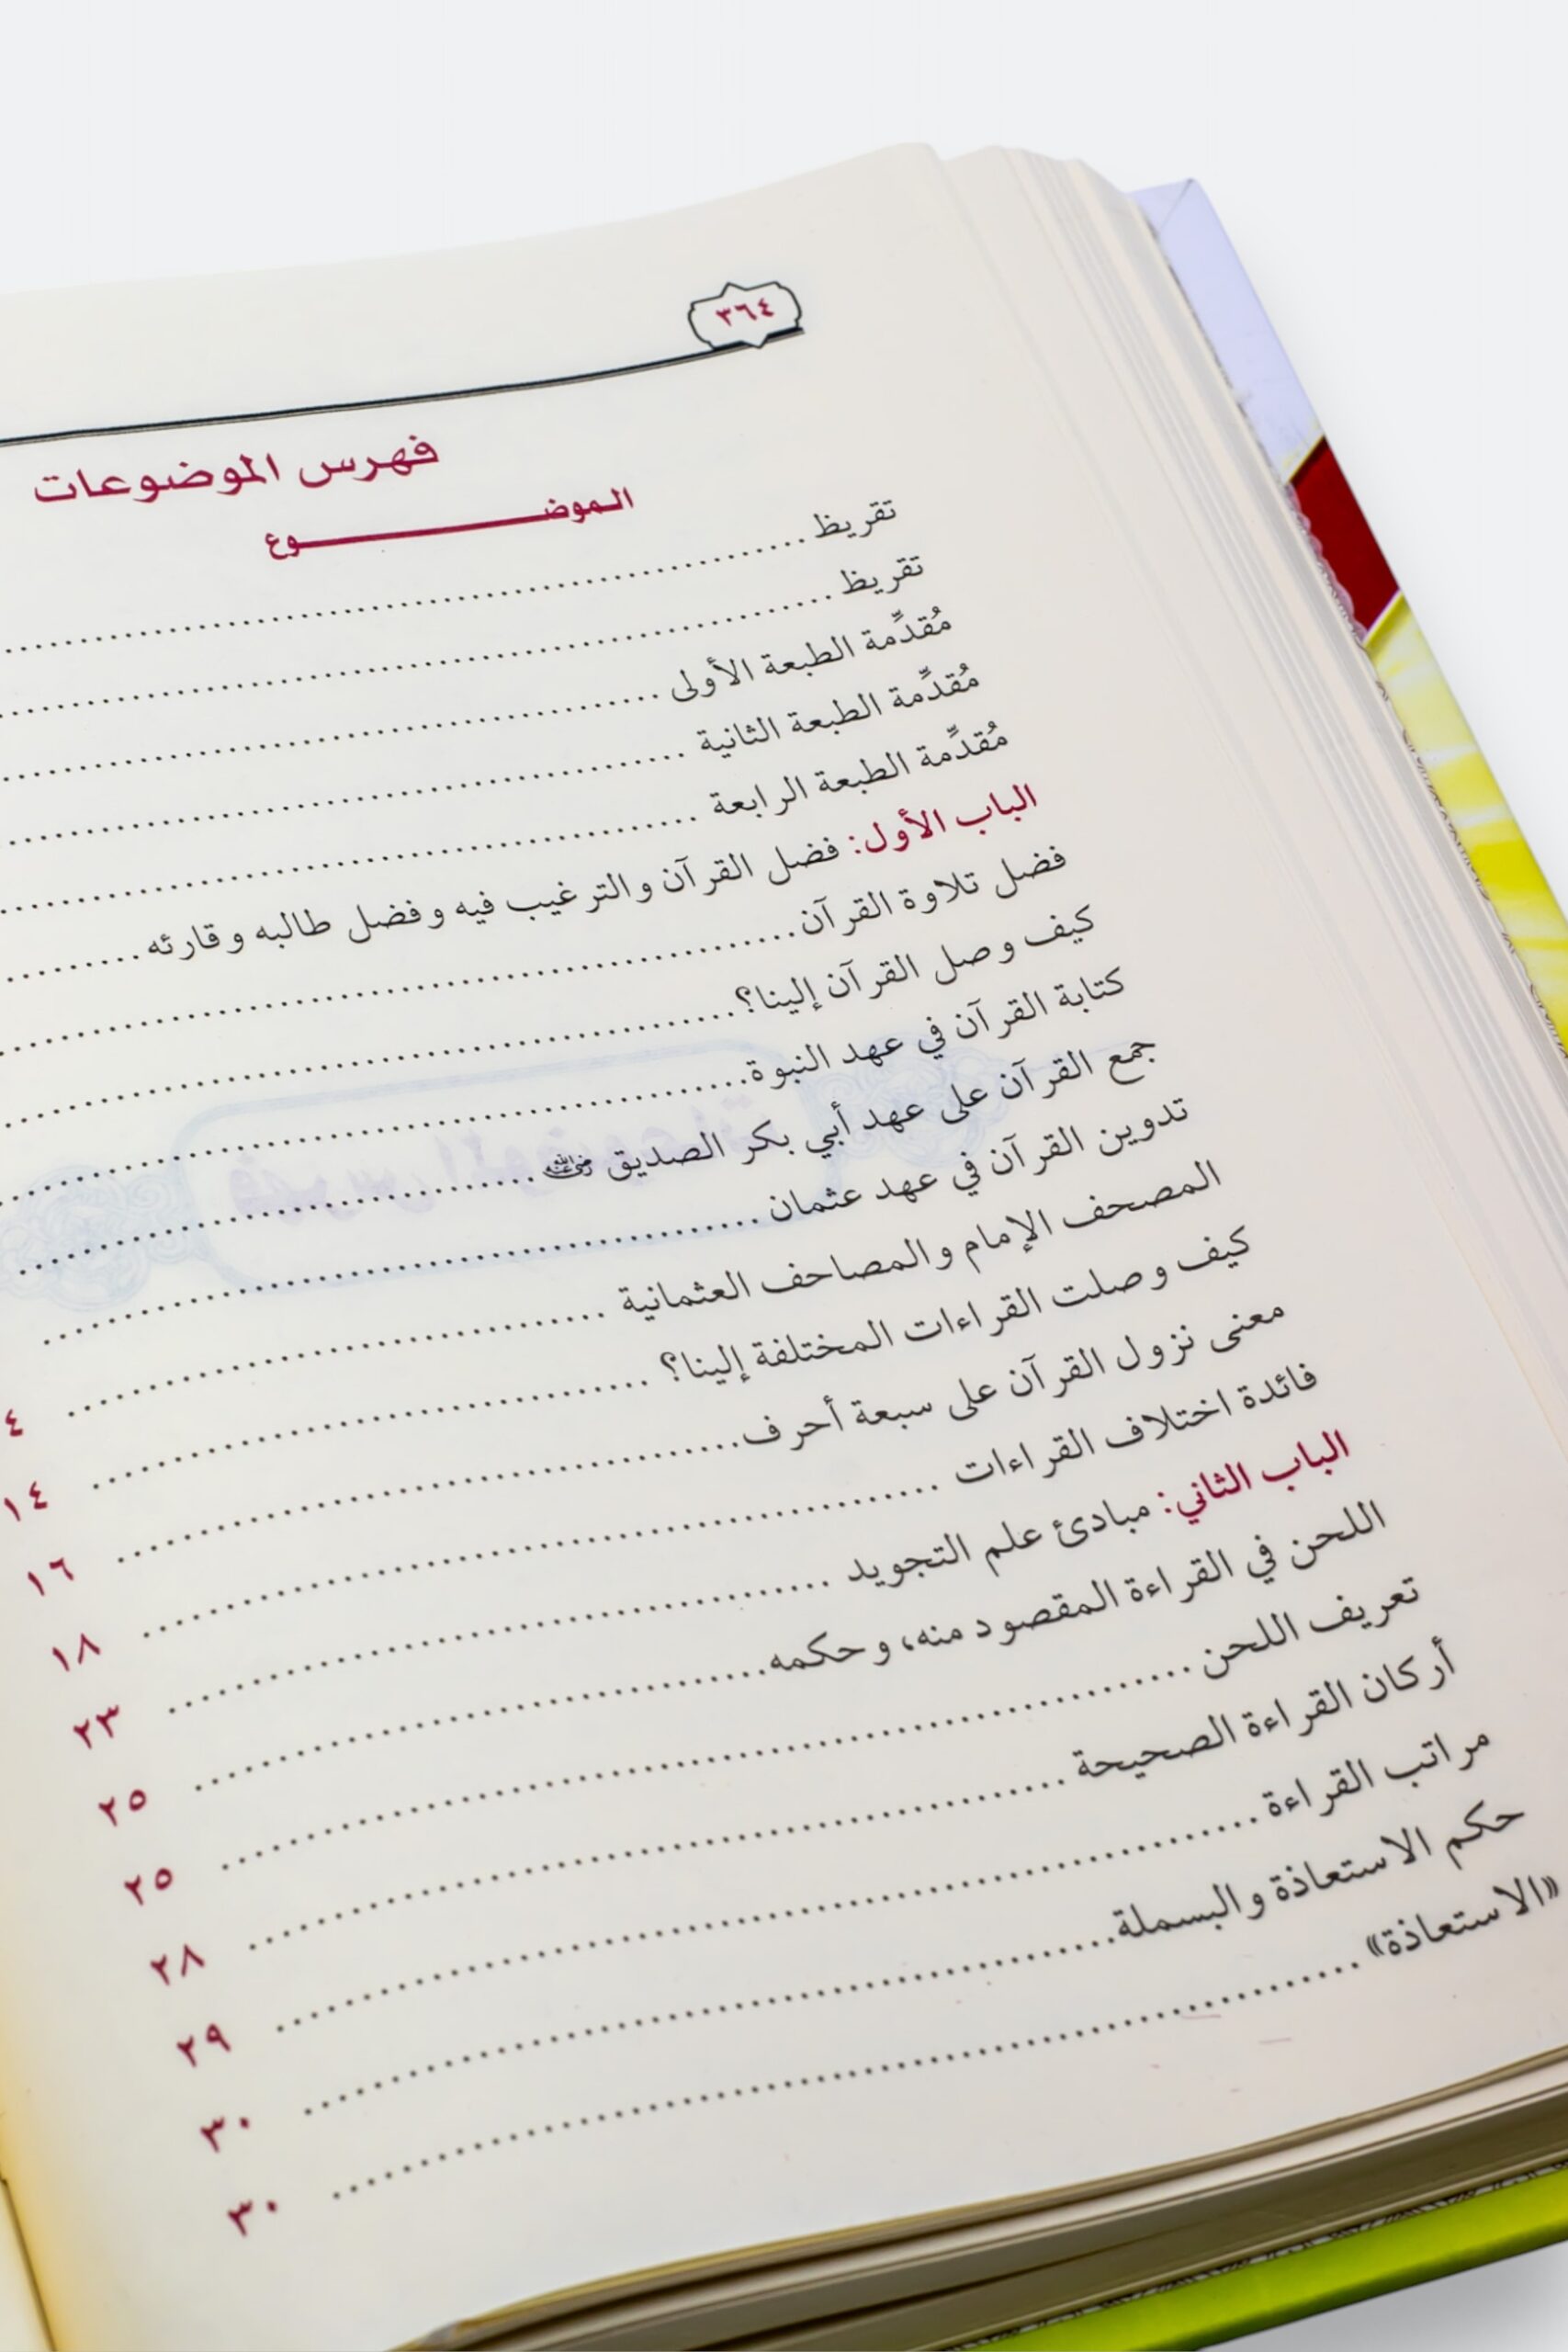 ٣٦٤
فهرس الموضوعات
الموضـــــــــوع
تقريظ
تقريظ
مُقدِّمة الطبعة الأولى
مُقدِّمة الطبعة الثانية
مُقدِّمة الطبعة الرابعة
الباب الأول: فضل القرآن والترغيب فيه وفضل طالبه وقارئه
فضل تلاوة القرآن
كيف وصل القرآن إلينا؟
كتابة القرآن في عهد النبوة
جمع القرآن على عهد أبي بكر الصديق رضي الله عنه
تدوين القرآن في عهد عثمان
المصحف الإمام والمصاحف العثمانية ٤
كيف وصلت القراءات المختلفة إلينا؟ ١٤
معنى نزول القرآن على سبعة أحرف ١٦
فائدة اختلاف القراءات ١٨
الباب الثاني: مبادئ علم التجويد ٢٣
اللحن في القراءة المقصود منه، وحكمه ٢٥
تعريف اللحن ٢٥
أركان القراءة الصحيحة ٢٨
مراتب القراءة ٢٩
حكم الاستعاذة والبسملة ٣٠
«الاستعاذة» ٣٠